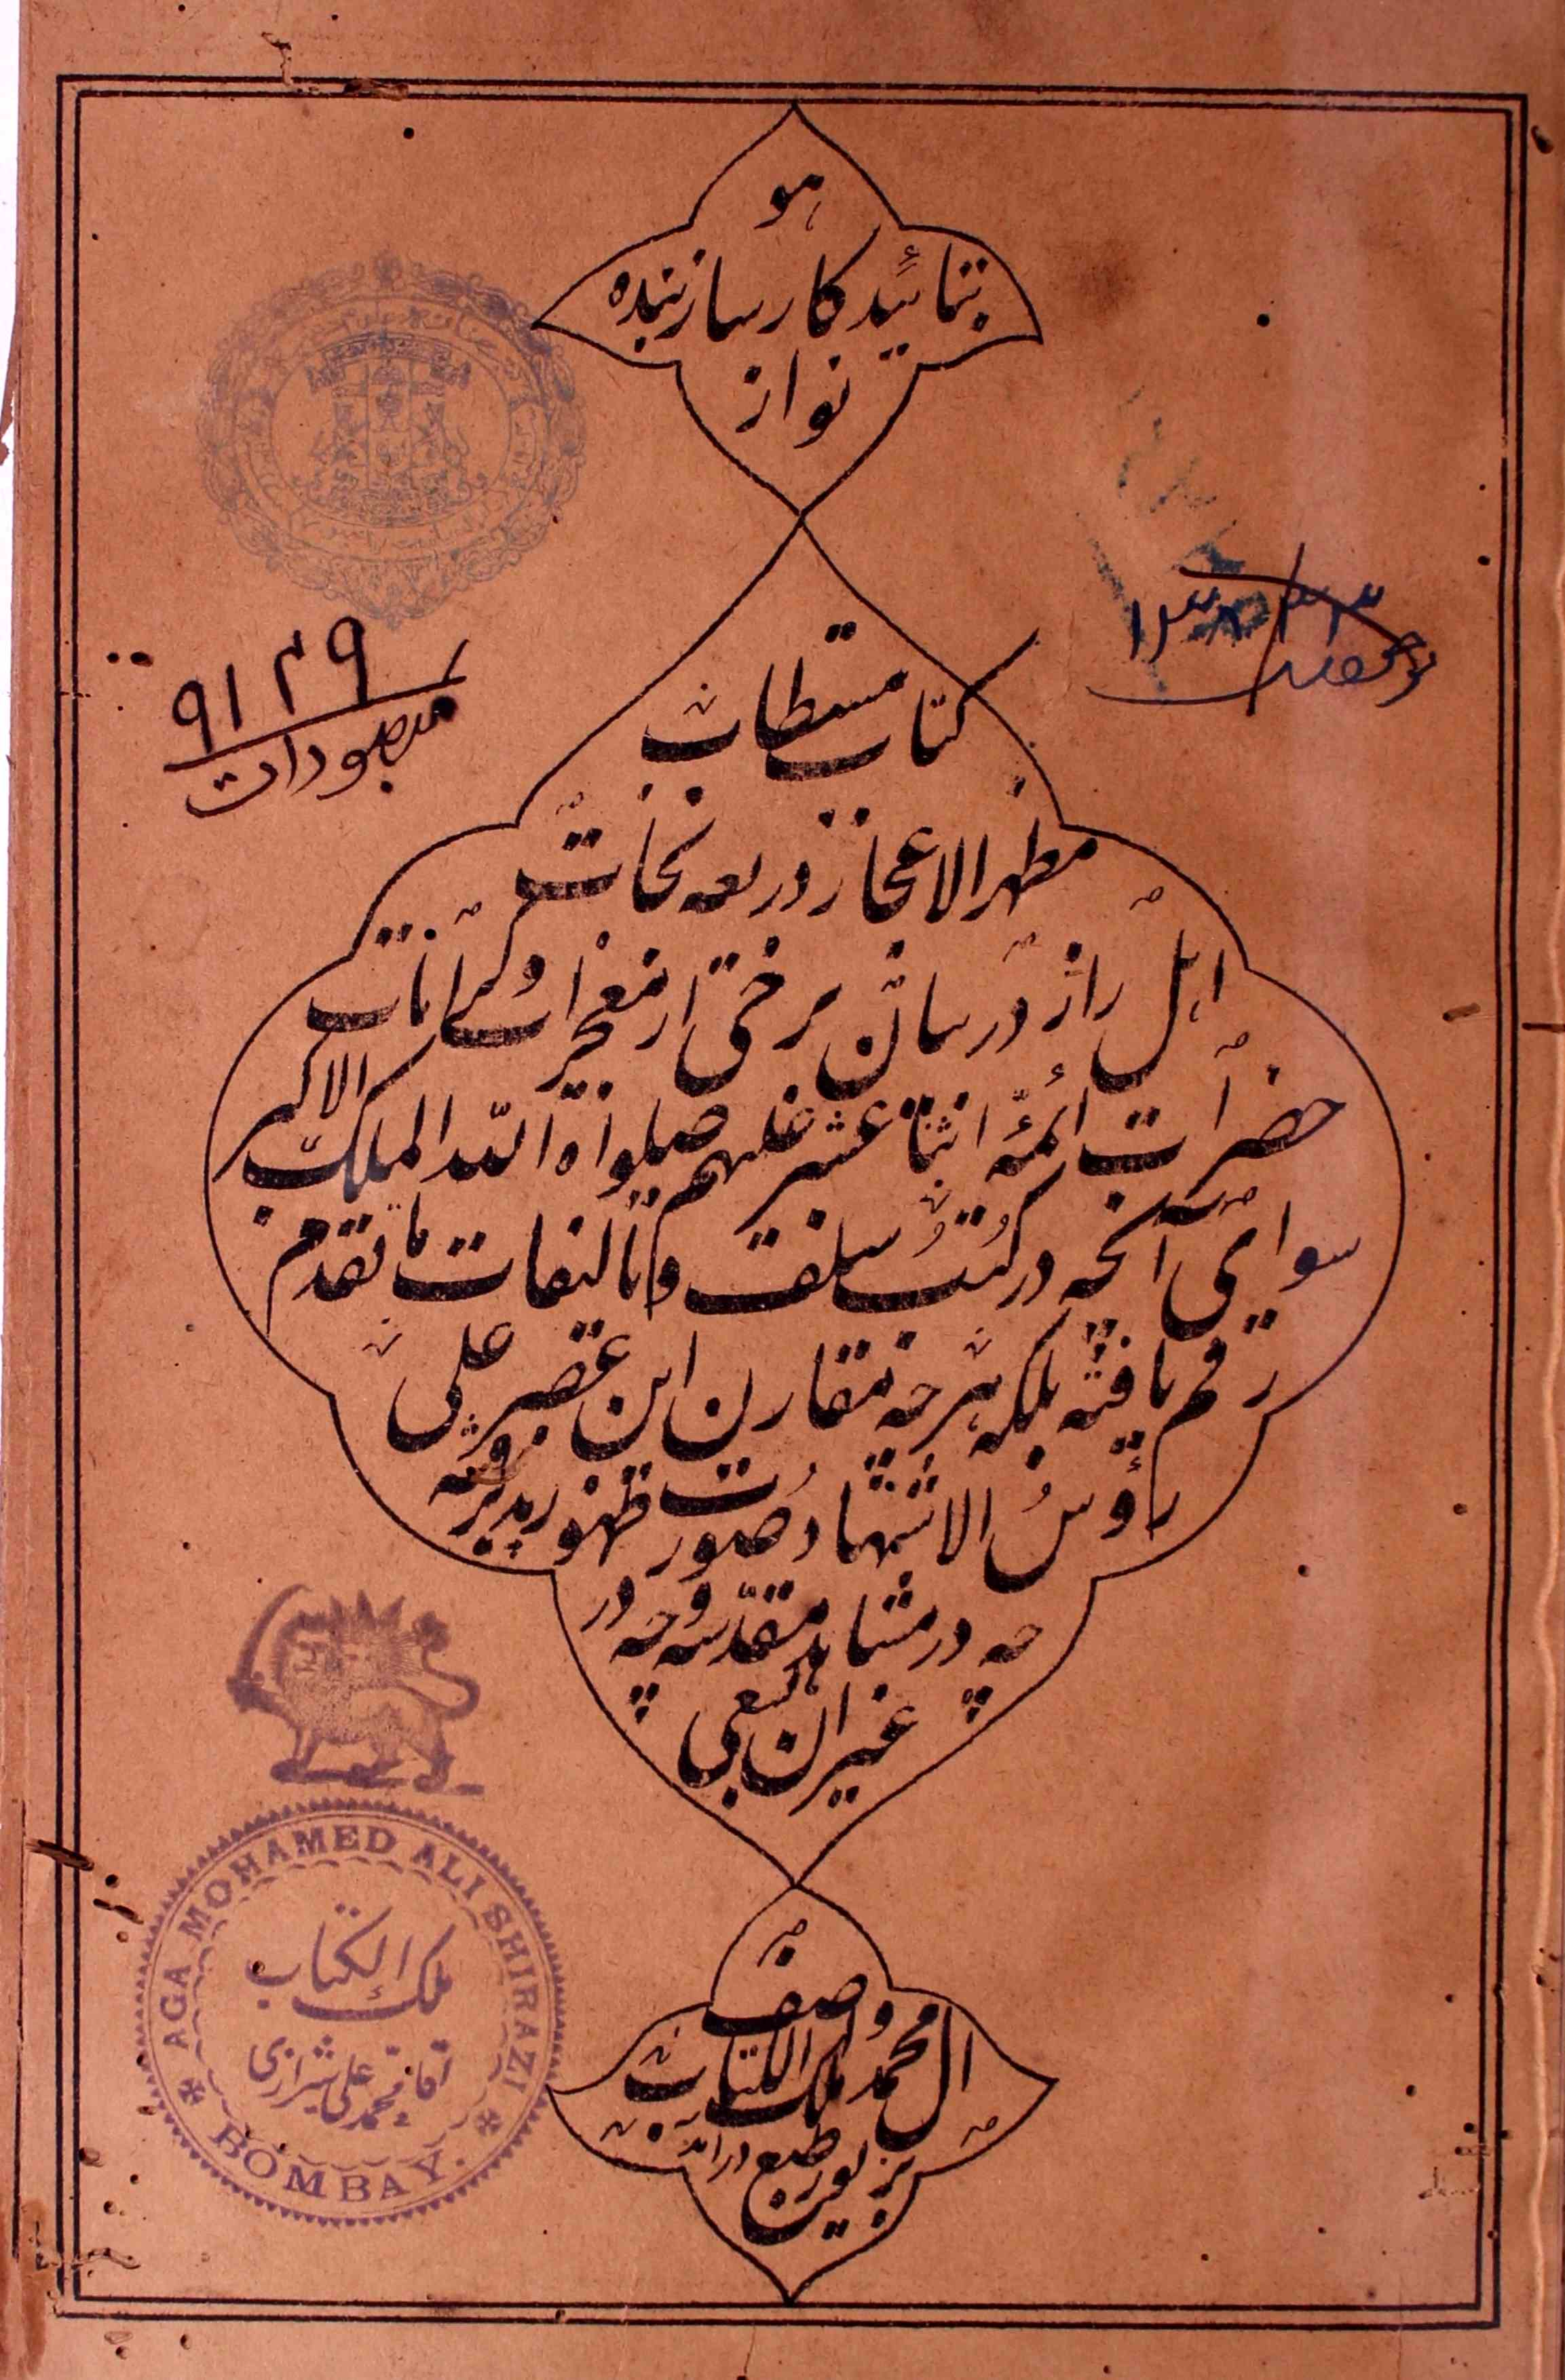 هو
بتائید کارساز بنده
نواز
کتاب مستطاب
مظهر الاعجاز و ذریعه نجات
اهل راز در بیان برخی از معجزات و کرامات
حضرات ائمّه اثنا عشر علیهم صلواة الله الملک الاکبر
سوای آنچه در کتب سلف و تالیفات ما تقدم
رقم یافته بلکه هر چه مقارن این عصر علی
رؤس الاشتهاد صورت ظهور پذیرفته
چه در مشاهد مقدّسه و چه در
غیر آن بسعی
وصف
ال محمد ملک الکتاب
بزیور طبع در آمد
۹۱۴۹
۱۳۸
AGA MOHAMED ALI SHIRAZI
ملک الکتاب
آقا میرزا محمد علی شیرازی
BOMBAY.